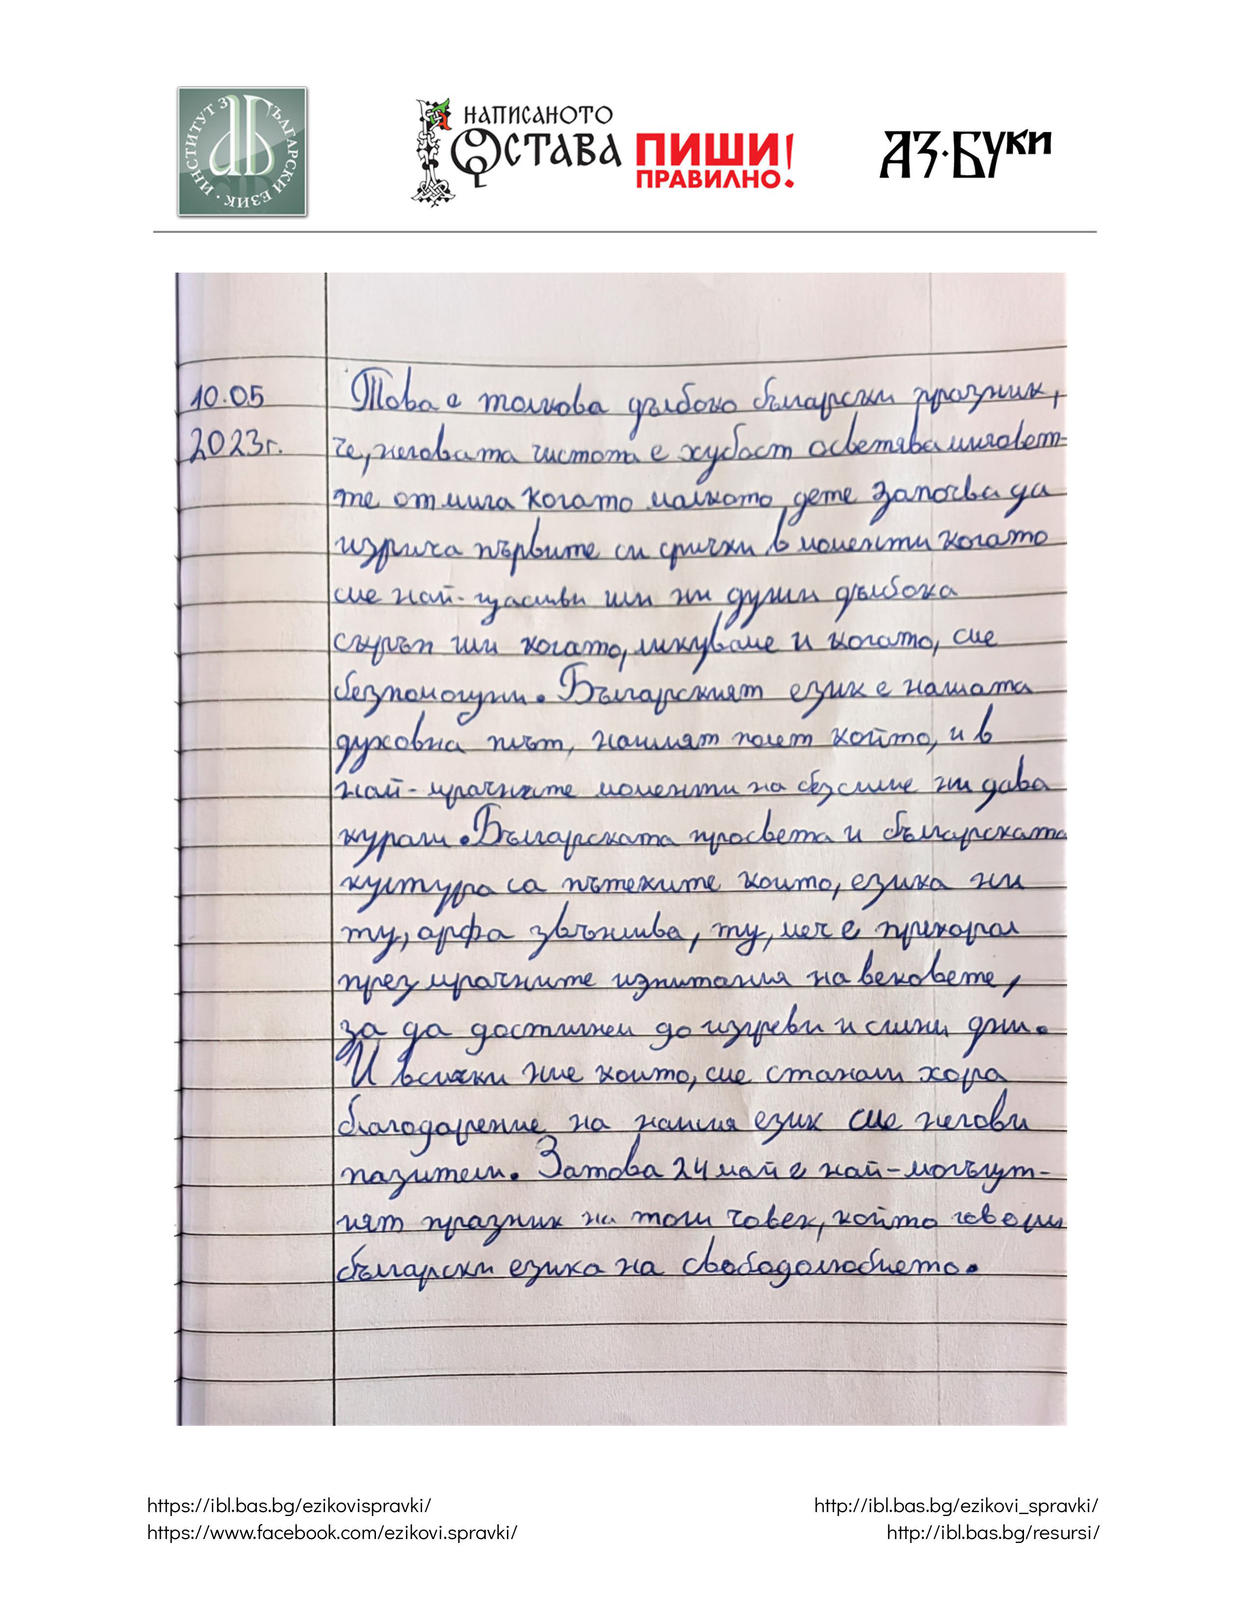 ИНСТИТУТ ЗА БЪЛГАРСКИ ЕЗИК
НАПИСАНОТО
ОСТАВА
ПИШИ
ПРАВИЛНО!
АЗ·БУКИ
10.05
2023г.
Това е толкова дълбоко български празник,
че, неговата чистота е хубост осветява миговет-
те от мига когато малкото дете започва да
изрича първите си срички в моменти когато
сме най-щасливи или ни души дълбока
скръп или когато, ликуваме и когато, сме
безпомощни. Българският език е нашата
духовна плът, нашият полет който, и в
най-мрачните моменти на безсилие ни дава
кураж. Българската просвета и българската
култура са пътеките които, езика ни
ту, арфа звънлива, ту, меч е прекарал
през мрачните изпитания на вековете,
за да достигнем до изгреви и слънчеви дни.
И всички ние които, сме станали хора
благодарение на нашия език сме негови
пазители. Затова 24 май е най-могъщт-
ият празник на този човек, който говори
български езика на свободолюбието.
https://ibl.bas.bg/ezikovispravki/
https://www.facebook.com/ezikovi.spravki/
http://ibl.bas.bg/ezikovi_spravki/
http://ibl.bas.bg/resursi/